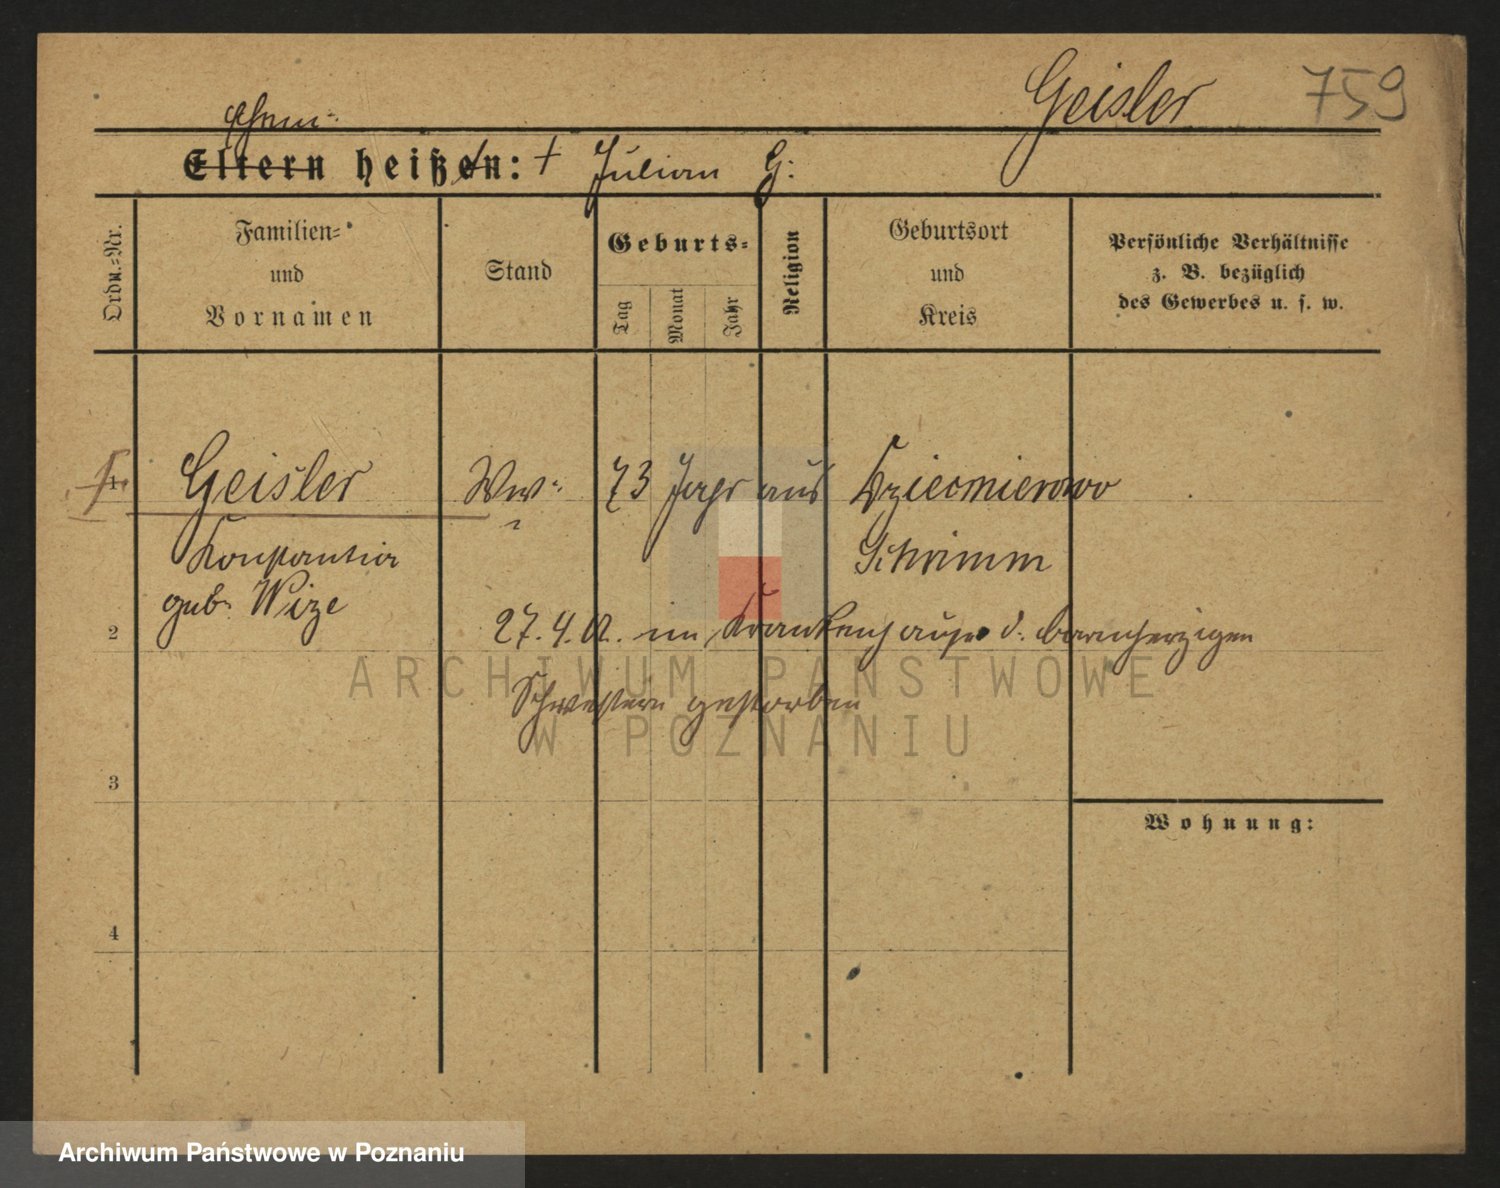 Geisler 759
Ehem:
Eltern heißen: + Julian G:
Ordn.=Nr.
Familien=
und
Vornamen
Stand
Geburts=
Tag
Monat
Jahr
Religion
Geburtsort
und
Kreis
Persönliche Verhältnisse
z. B. bezüglich
des Gewerbes u. s. w.
1 Geisler Ww: 73 Jahr aus Dziecmierowo
Konstantia Schrimm
geb. Wize
2 27.4.02. im Krankenhause d. barmherzigen
Schwestern gestorben
ARCHIWUM PAŃSTWOWE
W POZNANIU
3
Wohnung:
4
Archiwum Państwowe w Poznaniu